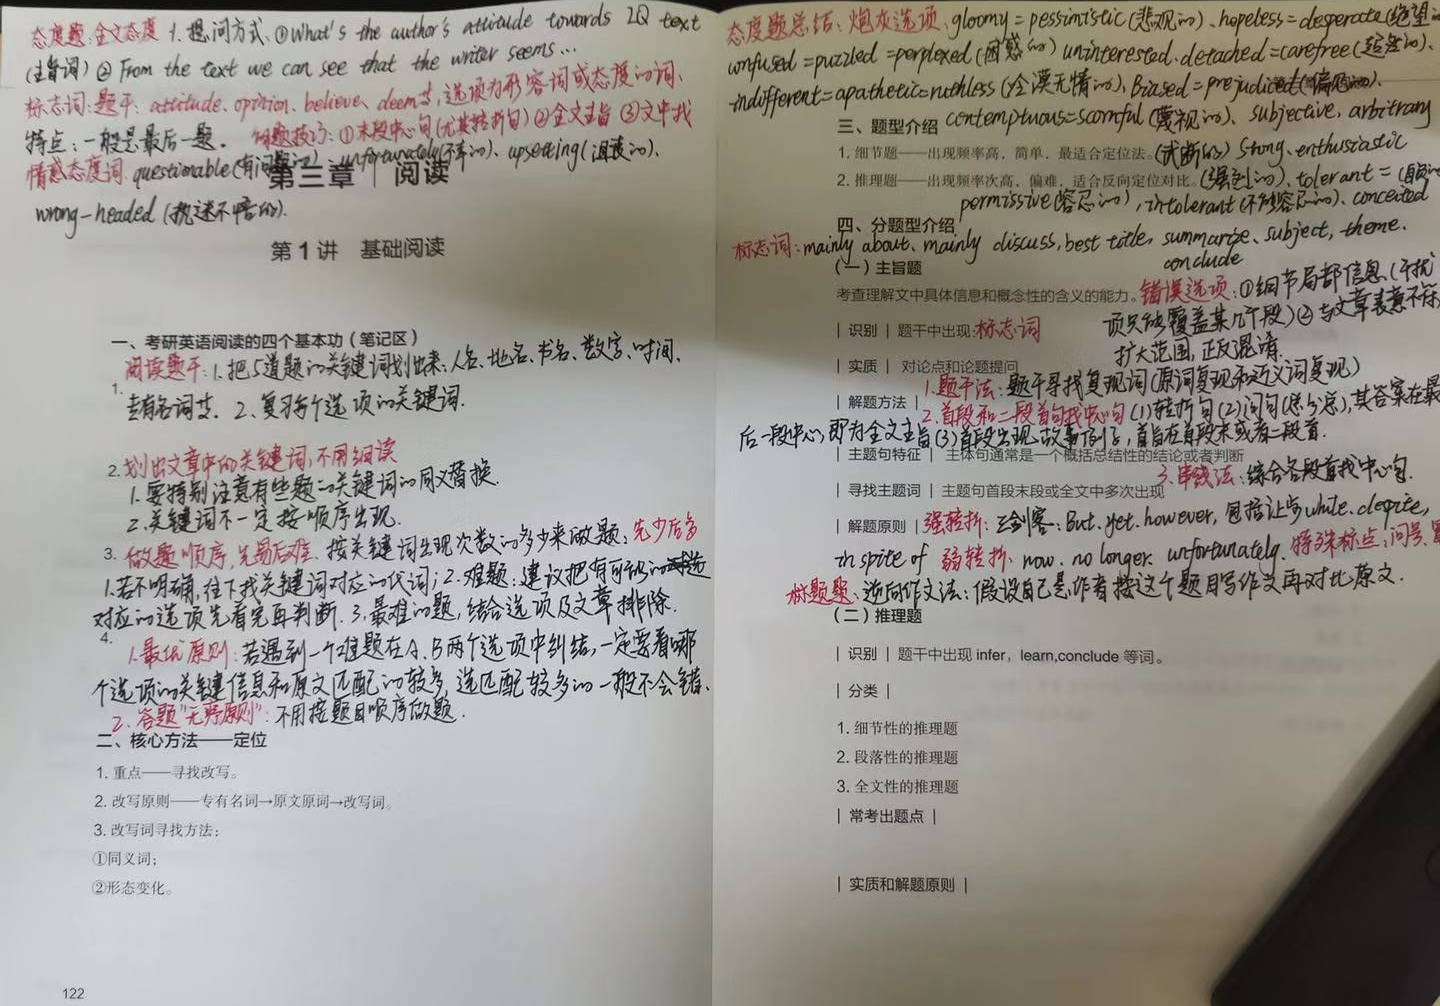 态度题:全文态度 1.提问方式、①What's the author's attitude towards IQ text
(主旨词) ② From the text we can see that the writer seems...
标志词:题干: attitude、opinion、believe、deem等,选项为形容词或态度的词、
特点:一般是最后一题. 解题技巧:①末段中心句(尤其转折句)②全文主旨 ③文中找
情感态度词. questionable(有问题的) unfortunately(不幸的)、upsetting(沮丧的)、
第三章 阅读
wrong-headed (执迷不悟的).
第 1 讲 基础阅读
一、考研英语阅读的四个基本功（笔记区）
阅读题干:1.把5道题的关键词划出来:人名、地名、书名、数字、时间、
1.
专有名词等. 2、复习每个选项的关键词.
2. 划出文章中的关键词,不用细读
1.要特别注意有些题的关键词的同义替换.
2.关键词不一定按顺序出现.
3. 做题顺序,先易后难. 按关键词出现次数的多少来做题,先少后多
1.若不明确,往下找关键词对应的代词;2.难题:建议把有可能的选
对应的选项先看完再判断. 3.最难的题,结合选项及文章排除.
4.
1.最优原则:若遇到一个难题在A、B两个选项中纠结,一定要看哪
个选项的关键信息和原文匹配的较多,选匹配较多的一般不会错.
2.答题"无序原则":不用按题目顺序做题.
二、核心方法——定位
1. 重点——寻找改写。
2. 改写原则——专有名词→原文原词→改写词。
3. 改写词寻找方法：
①同义词；
②形态变化。
122
态度题总结、炮灰选项、gloomy=pessimistic(悲观的)、hopeless=desperate(绝望的
confused=puzzled=perplexed(困惑的) uninterested、detached=carefree(超然的)、
indifferent=apathetic=ruthless(冷漠无情的)、Biased=prejudiced(偏见的).
contemptuous=scornful(蔑视的)、subjective、arbitrary
三、题型介绍
1. 细节题——出现频率高，简单，最适合定位法。(武断的) Strong、enthusiastic
2. 推理题——出现频率次高，偏难，适合反向定位对比。(强烈的)、tolerant=
permissive(容忍的),intolerant(不能容忍的)、conceited
四、分题型介绍
标志词:mainly about、mainly discuss,best title, summarize、subject, theme.
conclude
（一）主旨题
考查理解文中具体信息和概念性的含义的能力。错误选项:①细节局部信息(干扰
| 识别 | 题干中出现:标志词 项只能覆盖某几个段)②与文章表意不符
扩大范围,正反混淆.
| 实质 | 对论点和论题提问
1.题干法:题干寻找复现词(原词复现和近义词复现)
| 解题方法 | 2.首段和二段首句找中心句(1)转折句(2)问句(总分总),其答案在最
后一段中心,即为全文主旨(3)首段出现故事例子,首旨在首段末或者二段首.
| 主题句特征 | 主体句通常是一个概括总结性的结论或者判断
3.串线法:综合各段首找中心句.
| 寻找主题词 | 主题句首段末段或全文中多次出现
| 解题原则 | 强转折:三剑客:But、yet、however,包括让步while、despite,
in spite of 弱转折、now、no longer、unfortunately. 特殊标点:问号、冒
标题题:逆向作文法:假设自己是作者按这个题目写作文再对比原文.
（二）推理题
| 识别 | 题干中出现 infer，learn,conclude 等词。
| 分类 |
1. 细节性的推理题
2. 段落性的推理题
3. 全文性的推理题
| 常考出题点 |
| 实质和解题原则 |